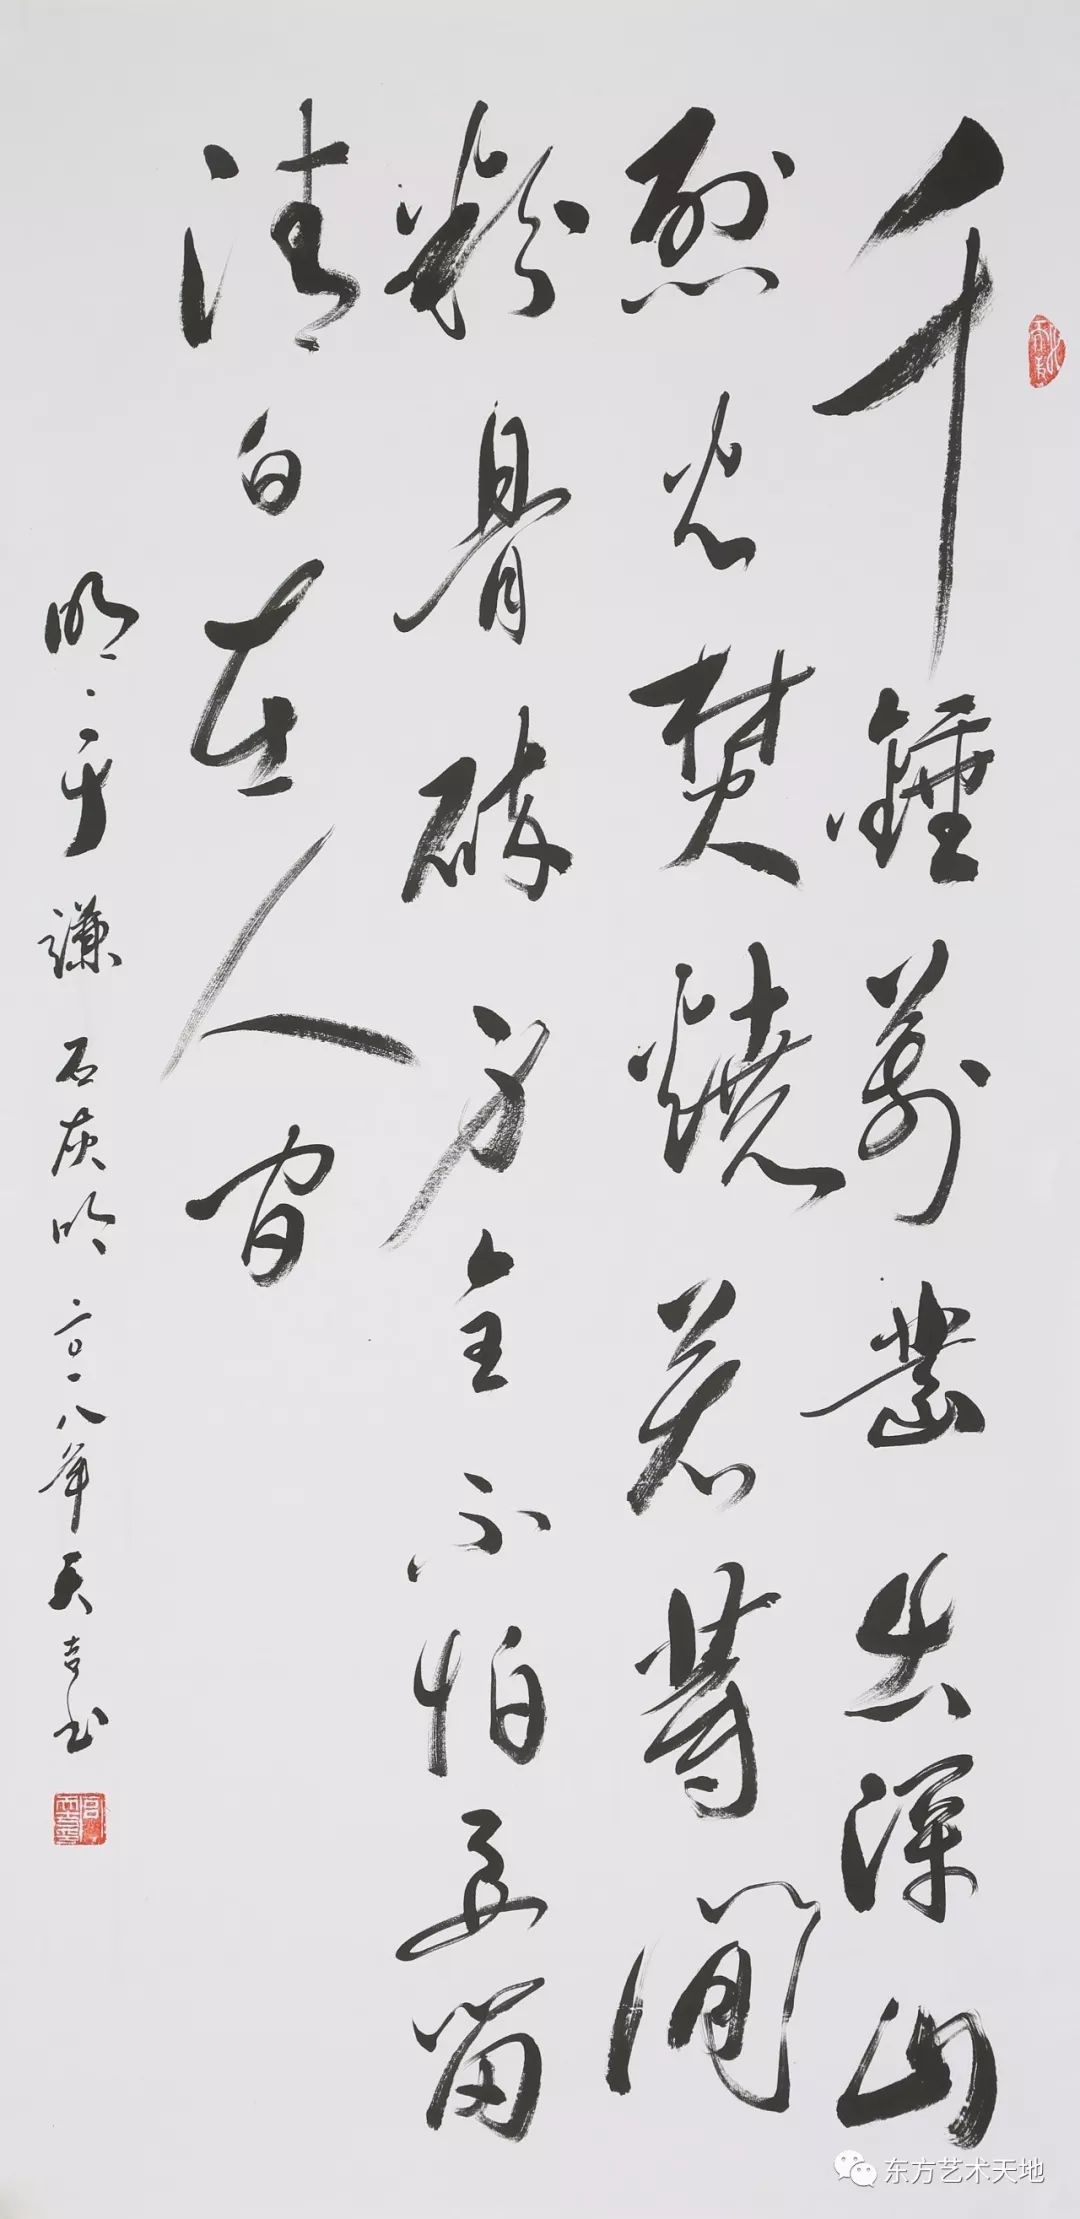 千錘萬凿出深山
烈火焚燒若等閒
粉骨碎身全不怕要留
清白在人間
明·于謙 石灰吟 二〇一八年天吉书
东方艺术天地